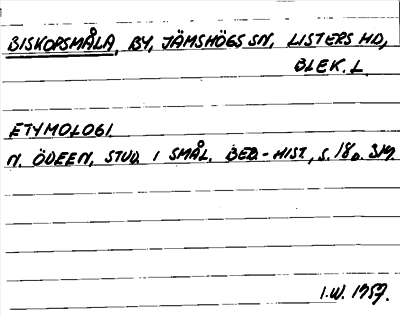 BISKOPSMÅLA, BY, JÄMSHÖGS SN, LISTERS HD,
BLEK. L.
ETYMOLOGI
N. ÖDEEN, STUD. I SMÅL. BEB.-HIST., S. 18 o.
I.W. 1957.